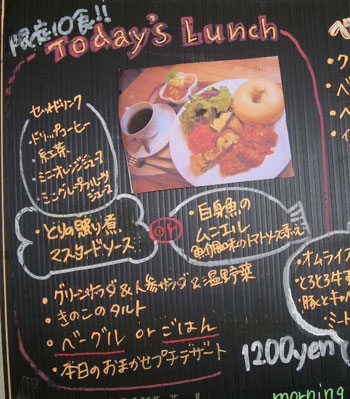 限定10食!!
Today's Lunch
セットドリンク
・ドリップコーヒー
・紅茶
・ミニオレンジジュース
・ミニグレープフルーツジュース
・とりの照り煮
マスタードソース
or
・白身魚の
ムニエル
トマトソース添え
・グリーンサラダ&人参サラダ&温野菜
・きのこのタルト
・ベーグル or ごはん
・本日のおまかせプチデザート
1200yen
・オムライス
・とろとろ牛
・豚と
morning